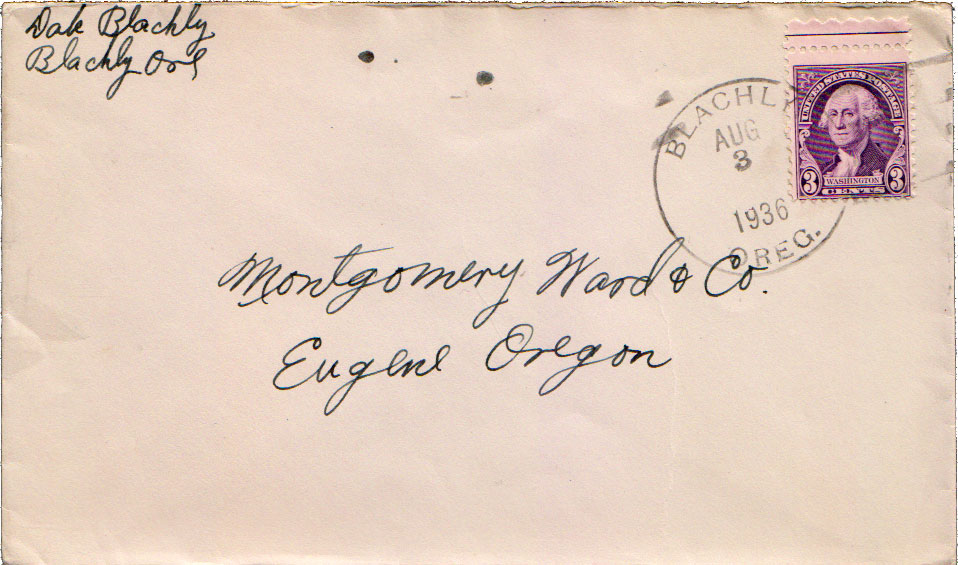 Dak Blachly
Blachly Ore
BLACHLY
AUG
3
1936
OREG.
UNITED STATES POSTAGE
3 WASHINGTON 3
CENTS
Montgomery Ward & Co.
Eugene Oregon